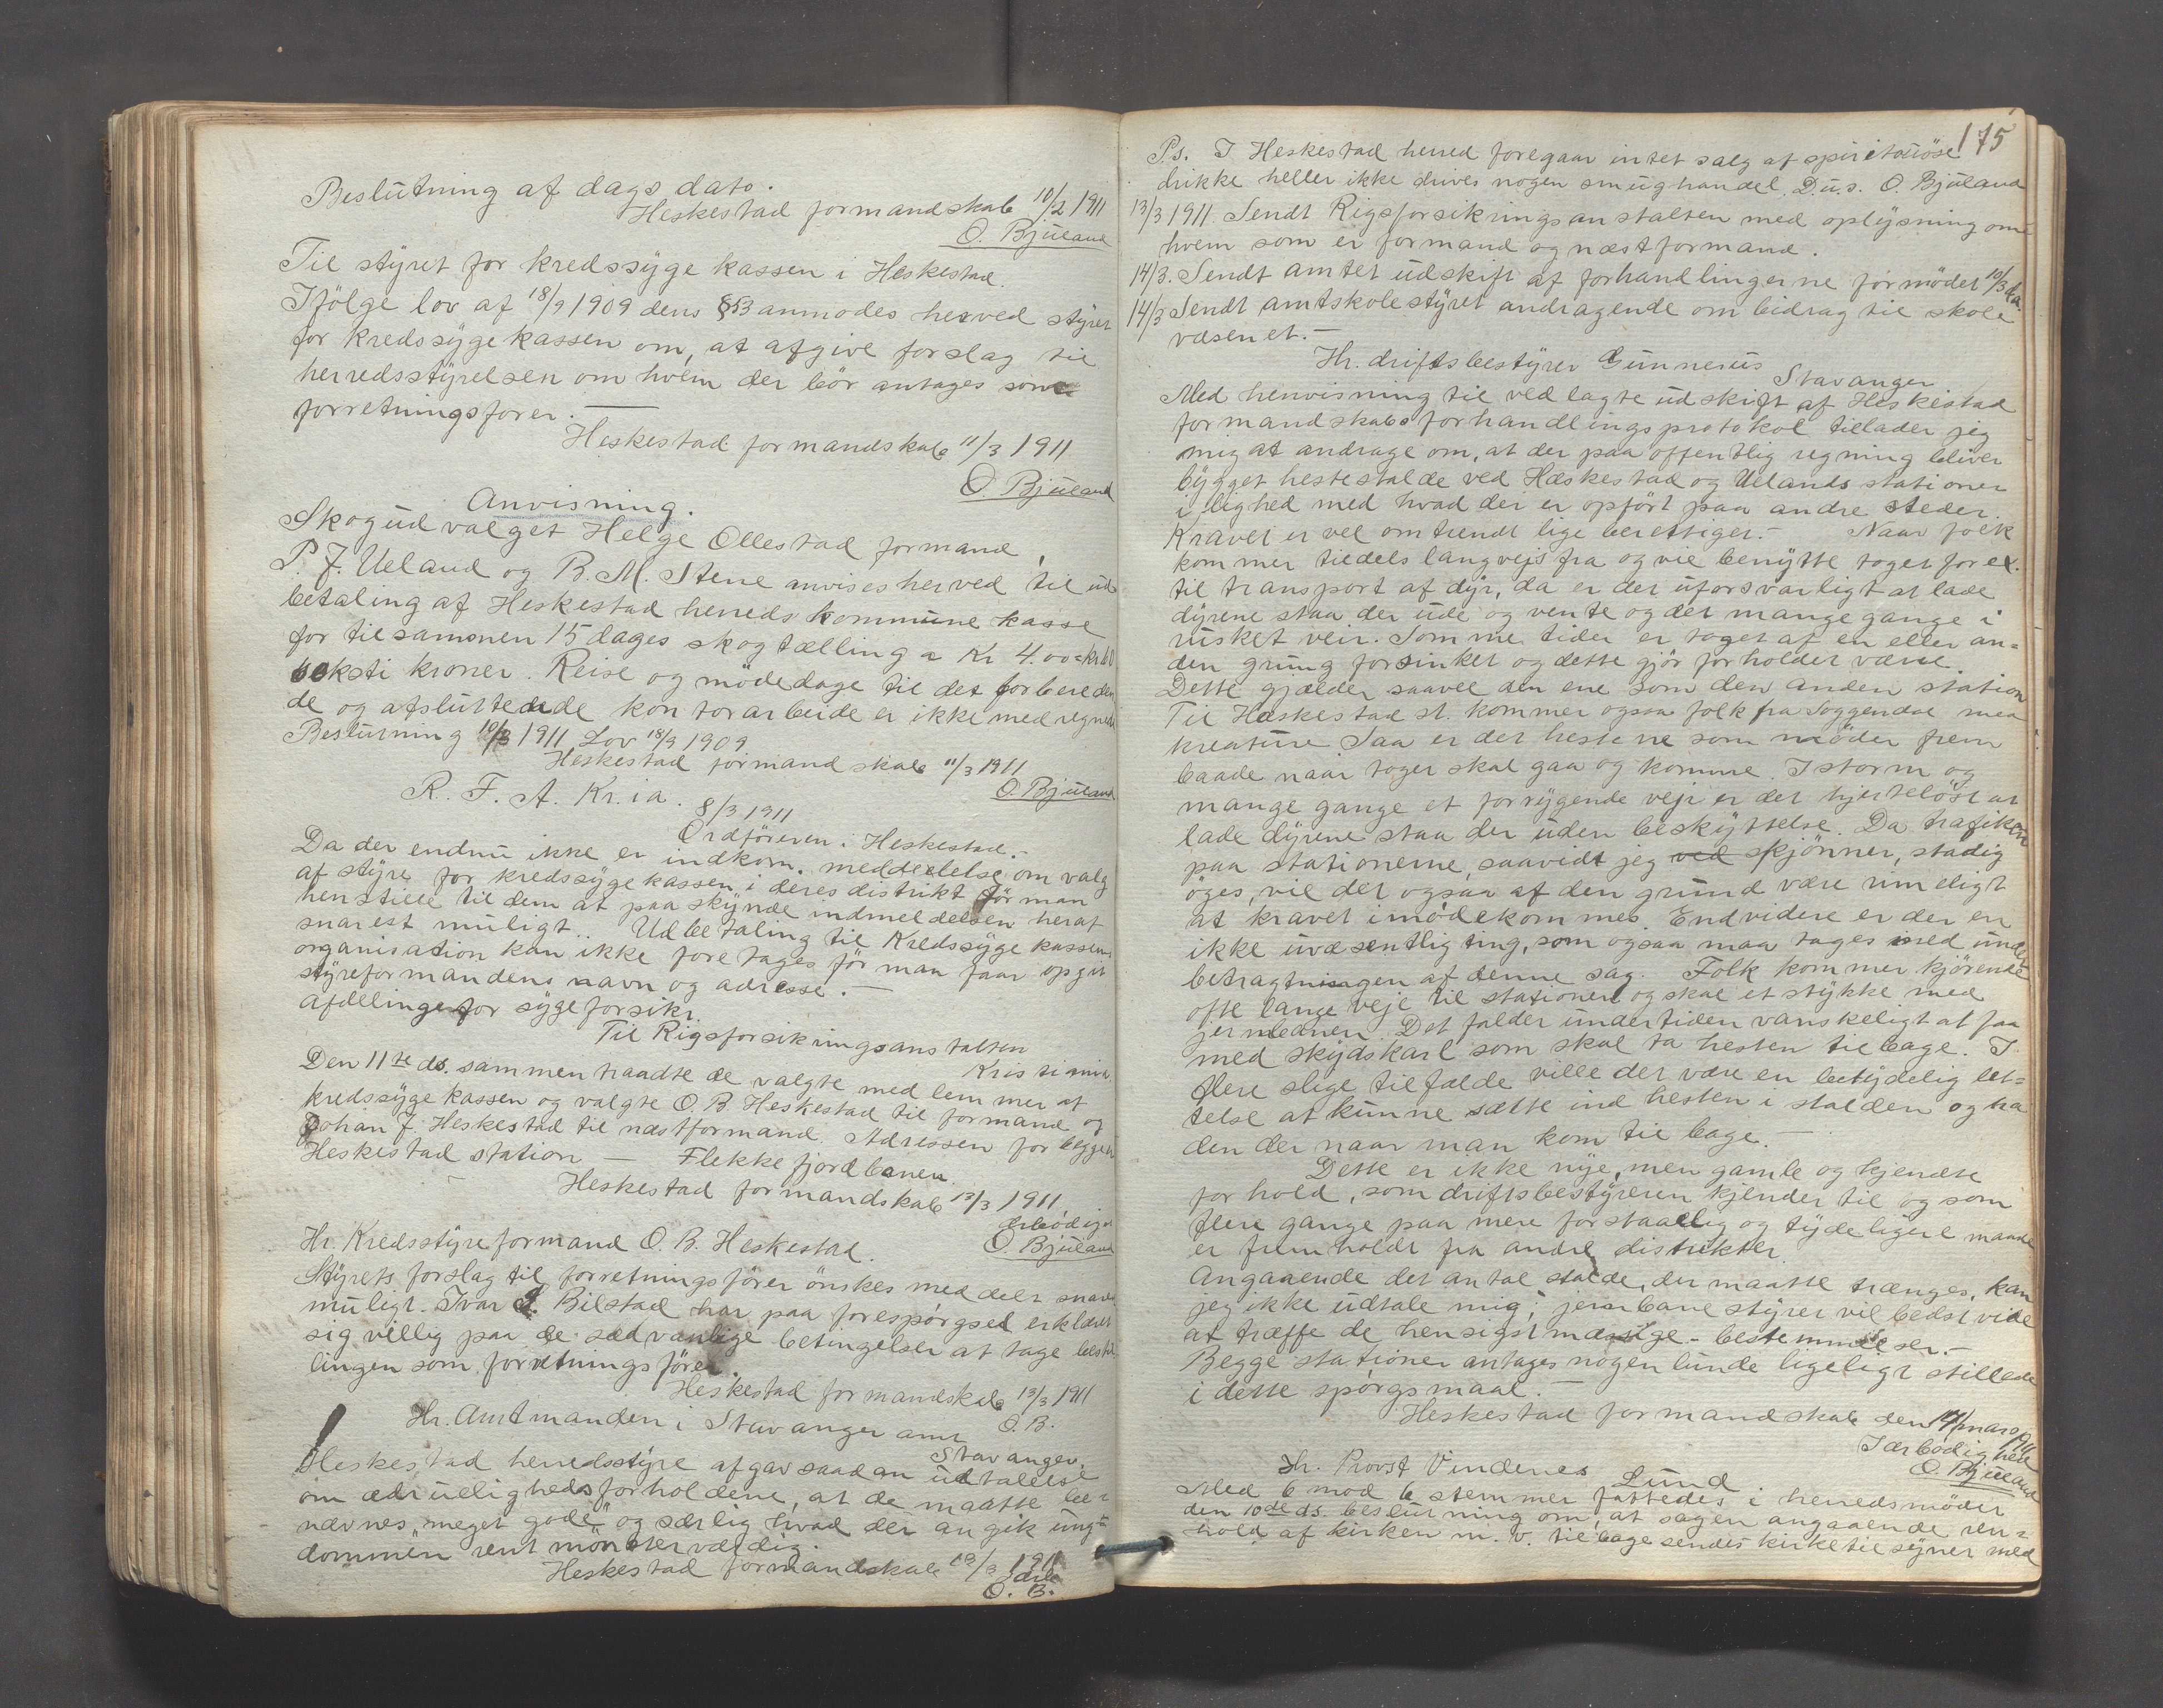 Beslutning af dags dato.
Heskestad formandskab 10/2 1911
O. Bjuland
Til styret for kredssygekassen i Heskestad.
Ifölge lov af 18/9 1909 dens § 53 anmodes herved styret
for kredssygekassen om, at afgive forslag til
herredsstyrelsen om hvem der bör antages som
forretningsförer. —
Heskestad formandskab 11/3 1911
O. Bjuland
Anvisning.
Skogudvalget Helge Ollestad formand,
P. J. Ueland og B. M. Stene anvises herved til ud
betaling af Heskestad herreds kommune kasse
for tilsammen 15 dages skogtælling a Kr 4.00 = kr 60
seksti kroner. Reise og mödedage til det forbereden
de og afsluttende kontorarbeide er ikke medregnede
Beslutning 10/3 1911, Lov 18/9 1909
Heskestad formandskab 11/3 1911
O. Bjuland
R. F. A. Kr.ia. 8/3 1911
Ordföreren i Heskestad.-
Da der endnu ikke er indkom. meddelelse om valg
af styre for kredssygekassen i deres distrikt tör man
henstille til dem at paaskynde indmeldelsen heraf
snarest muligt.. Udbetaling til Kredssygekassens
organisation kan ikke foretages för man faar opgit
styreformandens navn og adresse. —
Afdelinger for sygeforsikr.
Til Rigsforsikringsanstalten
Kristiania.
Den 11te ds. sammentraadte de valgte medlemmer af
kredssygekassen og valgte O. B. Heskestad til formand og
Johan J. Heskestad til næstformand. Adressen for begge er
Heskestad station — Flekkefjordbanen.
Heskestad formandskab 13/3 1911
Ærbödigst
O. Bjuland
Hr. Kredsstyreformand O. B. Heskestad.
Styrets forslag til forretningsförer önskes meddelt snarest
muligt. Ivar S. Bilstad har paa forespörgsel erklæret
sig villig paa de sædvanlige betingelser at tage bestil
lingen som forretningsförer.
Heskestad formandskab 13/3 1911
O. B.
Hr. Amtmanden i Stavanger amt
Stavanger.
Heskestad herredsstyre afgav saadan udtalelse
om ædruelighedsforholdene, at de maatte be=
nævnes „meget gode“ og særlig hvad der angik ung=
dommen „rent mönsterværdig.
Heskestad formandskab 13/3 1911
O. B.
175
P.s. I Heskestad herred foregaar intet salg af spirituöse
drikke heller ikke drives nogen smughandel. D.u.s. O. Bjuland
13/3 1911. Sendt Rigsforsikringsanstalten med oplysning om
hvem som er formand og næstformand.
14/3. Sendt amtet udskift af forhandlingerne for mödet 10/3 d.a.
14/3 Sendt amtskolestyret andragende om bidrag til skole
væsenet.-
Hr. driftsbestyrer Gunnerus
Stavanger
Med henvisning til vedlagte udskift af Heskestad
formandskabsforhandlingsprotokol tillader jeg
mig at andrage om, at der paa offentlig regning bliver
bygget hestestalde ved Hæskestad og Uelands stationer
i lighed med hvad der er opfört paa andre steder.
Kravet er vel omtrendt lige berettiget.- Naar folk
kommer tildels langvejs fra og vil benytte toget for ex.
til transport af dyr, da er det uforsvarligt at lade
dyrene staa der ude og vente og det mange gange i
rusket veir. Somme tider er toget af en eller an=
den grung forsinket og dette gjör forholdet værre.
Dette gjælder saavel den ene som den anden station
Til Hæskestad st. kommer ogsaa folk fra Soggendal med
kreature. Saa er det hestene som möder frem
baade naar toget skal gaa og komme. I storm og
mange gange et forrygende vejr er det hjertelöst at
lade dyrene staa der uden beskyttelse. Da trafiken
paa stationerne, saavidt jeg ved skjönner, stadig
öges, vil det ogsaa af den grund være rimeligt
at kravet imödekommes. Endvidere er der en
ikke uvæsentlig ting, som ogsaa maa tages med under
betragtningen af denne sag. Folk kommer kjörende
ofte lange veje til stationen og skal et stykke med
jernbanen. Det falder undertiden vanskeligt at faa
med skydskarl som skal ta hesten tilbage. I
flere slige tilfælde ville det være en betydelig let=
telse at kunne sætte ind hesten i stalden og ha
den der naar man kom tilbage. —
Dette er ikke nye, men gamle og kjendte
forhold, som driftsbestyreren kjender til og som
flere gange paa mere forstaaelig og tydeligere maade
er fremholdt fra andre distrikter
Angaaende det antal stalde, der maatte trænges, kan
jeg ikke udtale mig; jernbanestyret vil bedst vide
at træffe de hensigtmæssige - bestemmelser.-
Begge stationer antages nogenlunde ligeligt stillede
i dette spörgsmaal.-
Heskestad formandskab den 14/ mars 1911
I ærbödighed
O. Bjuland
Hr. Provst Vindenes Lund
Med 6 mod 6 stemmer fattedes i herredsmödet
den 10de ds. beslutning om, at sagen angaaende ren=
hold af kirken m. v. tilbagesendes kirketilsynet med